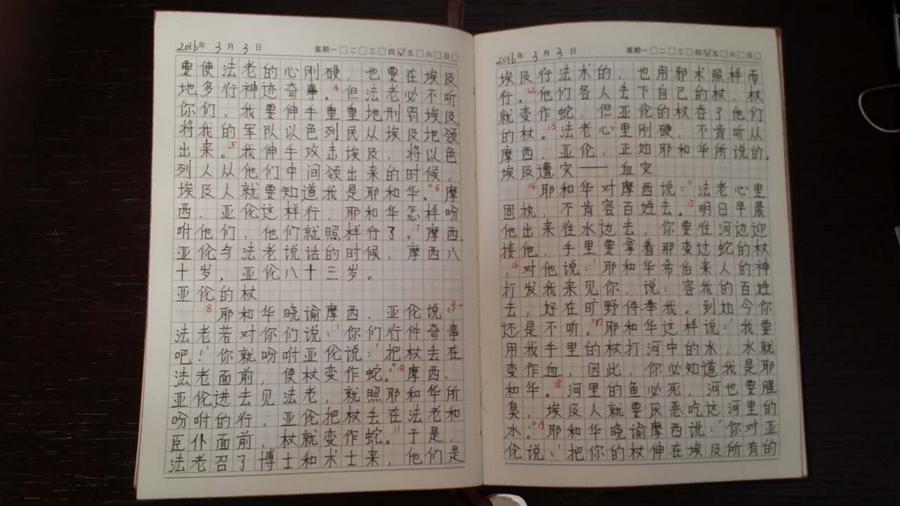 2016年 3月 3日 星期一□二□三□四☑五□六□日□
要使法老的心刚硬，也要在埃及
地多行神迹奇事。4但法老必不听
你们，我要伸手重重地刑罚埃及
将我的军队以色列民从埃及地领
出来。5我伸手攻击埃及，将以色
列人从他们中间领出来的时候，
埃及人就要知道我是耶和华。"6摩
西、亚伦这样行，耶和华怎样吩
咐他们，他们就照样行了。7摩西、
亚伦令法老说话的时候，摩西八
十岁，亚伦八十三岁。
亚伦的杖
8耶和华晓谕摩西、亚伦说：9"
法老若对你们说：'你们行件奇事
吧！'你就吩咐亚伦说：'把杖丢在
法老面前，使杖变作蛇。'"10摩西、
亚伦进去见法老，就照耶和华所
吩咐的行，亚伦把杖丢在法老和
臣仆面前，杖就变作蛇。11于是，
法老召了博士和术士来，他们是
2016年 3月 3日 星期一□二□三□四☑五□六□日□
埃及行法术的，也用邪术照样而
行。12他们各人丢下自己的杖，杖
就变作蛇，但亚伦的杖吞了他们
的杖。13法老心里刚硬，不肯听从
摩西、亚伦，正如耶和华所说的。
埃及遭灾——血灾
14耶和华对摩西说："法老心里
固执，不肯容百姓去。15明日早晨
他出来往水边去，你要往河边迎
接他，手里要拿着那变过蛇的杖
，16对他说：'耶和华希伯来人的神
打发我来见你，说：容我的百姓
去，好在旷野侍奉我。到如今你
还是不听。17耶和华这样说：'我要
用我手里的杖打河中的水，水就
变作血，因此，你必知道我是耶
和华。18河里的鱼必死，河也要腥
臭，埃及人就要厌恶吃这河里的
水。'"19耶和华晓谕摩西说："你对亚
伦说：'把你的杖伸在埃及所有的